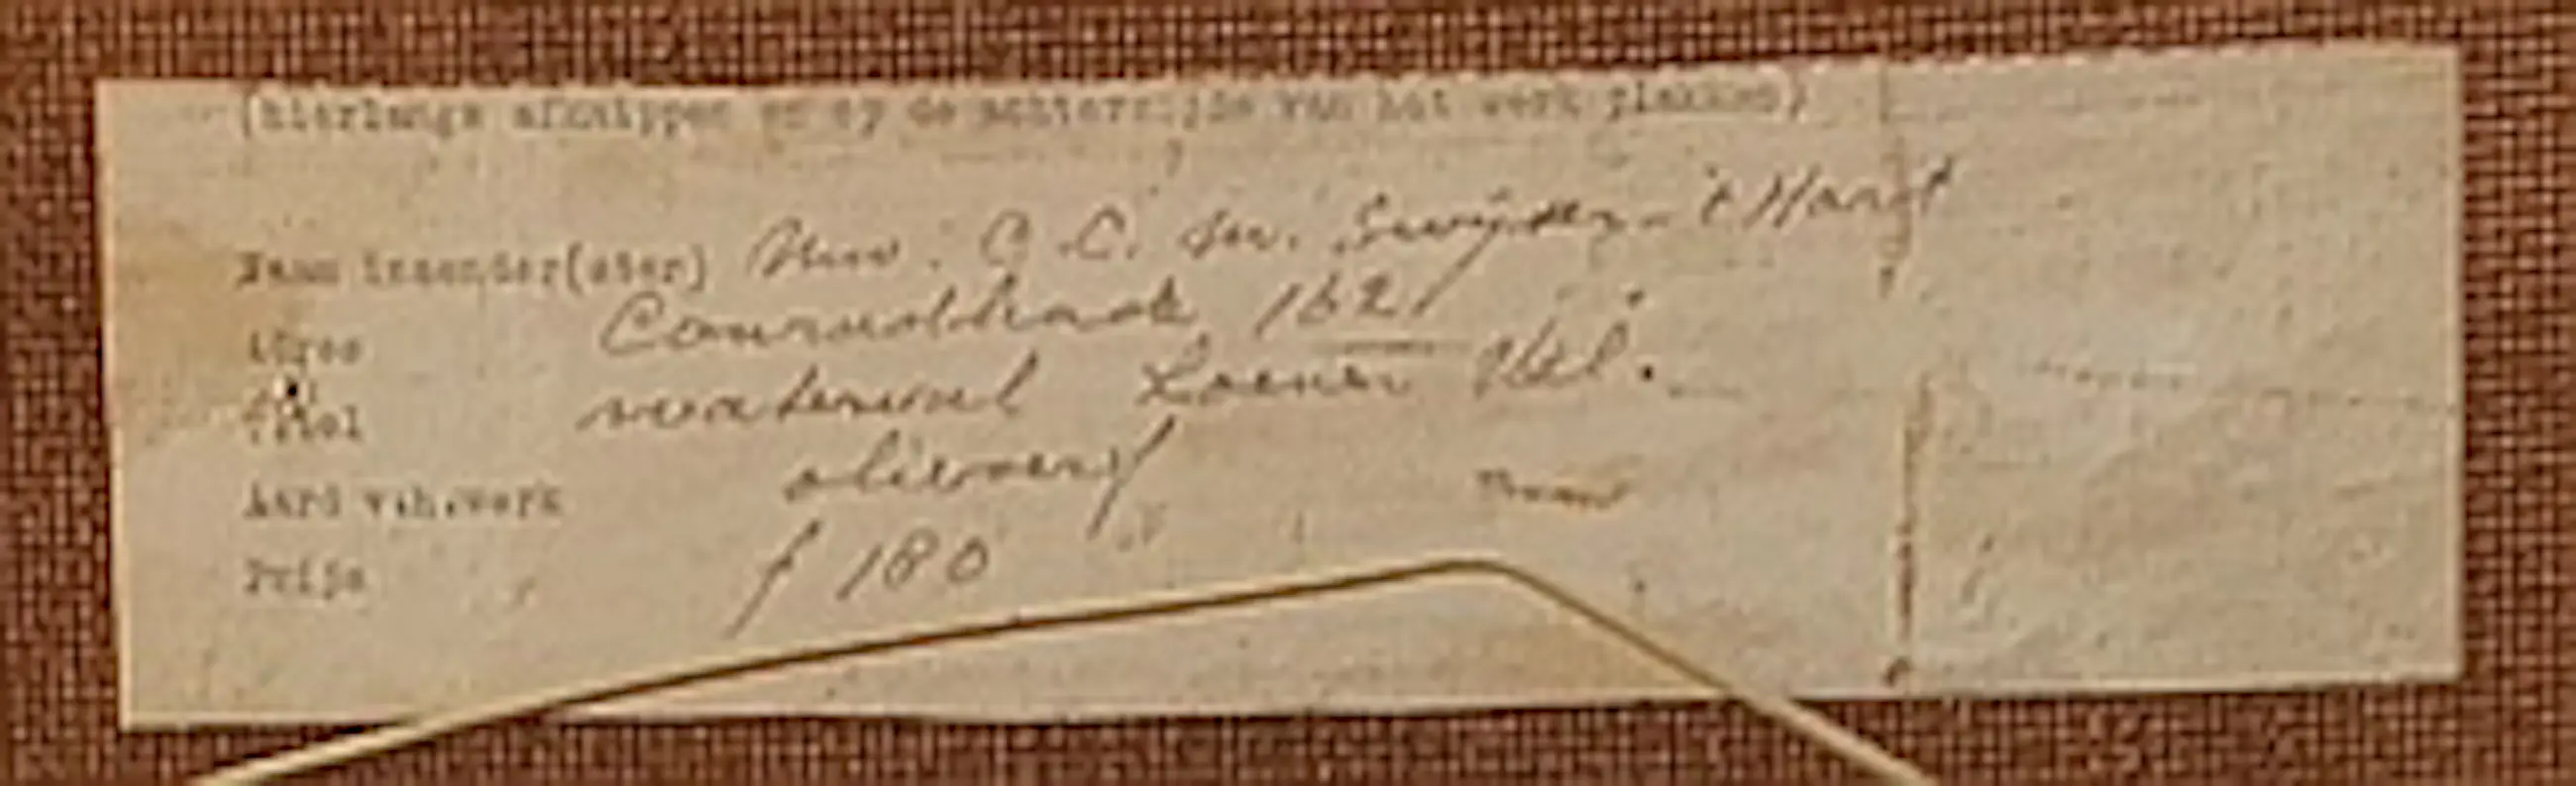 (hierlangs afknippen en op de achterzijde van het werk plakken)
Naam inzender(ster) Mw. C. C. M. Snijder - 't Hart
Adres Conradkade 162
Titel waterval Loenen Vel.
Aard v.h.werk olieverf
Prijs f 180